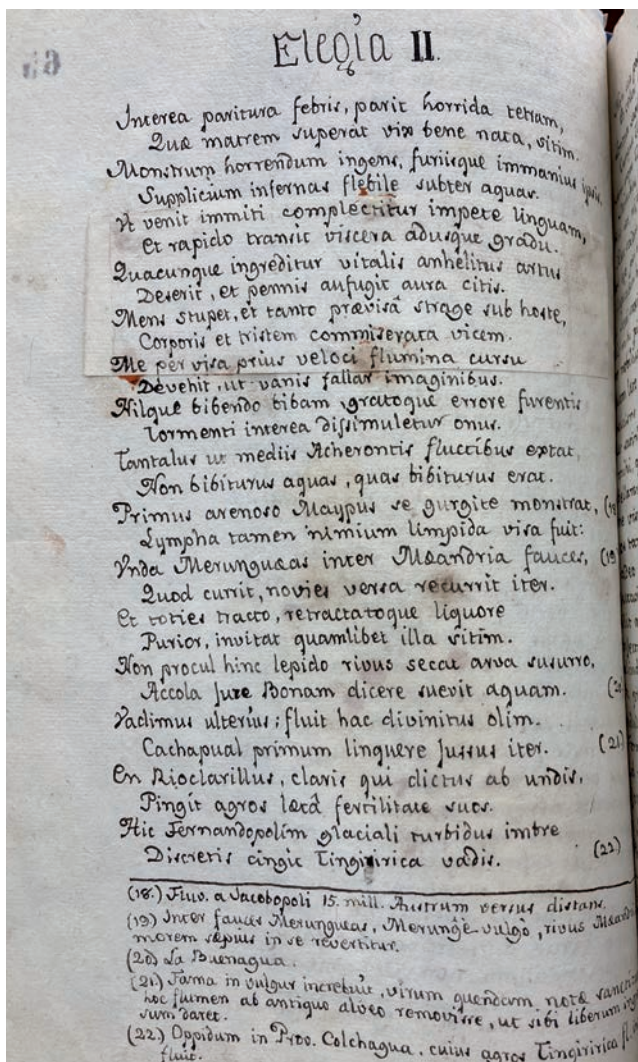 Elegia II.
Interea paritura febris, parit horrida tetram,
Quæ matrem superat vix bene nata, sitim.
Monstrum horrendum ingens, furiisque immanius ipsis,
Supplicium infernas flebile subter aquas.
Vt venit immiti complectitur impete linguam,
Et rapido transit viscera adusque gradu.
Quacunque ingreditur vitalis anhelitus artus
Deserit, et pennis aufugit aura citis.
Mens stupet, et tanto prævisâ strage sub hoste,
Corporis et tristem commiserata vicem.
Me per visa prius veloci flumina cursu
Devehit, ut vanis fallar imaginibus.
Nilque bibendo bibam, gratoque errore furentis
Tormenti interea dissimuletur onus.
Tantalus ut mediis Acherontis fluctibus extat,
Non bibiturus aquas, quas bibiturus erat.
Primus arenoso Maypus se gurgite monstrat, (18
Lympha tamen nimium limpida visa fuit:
Vnda Merunguæas inter Mæandria fauces, (19
Quod currit, novies versa recurrit iter.
Et toties tracto, retractatoque liquore
Purior, invitat quamlibet illa sitim.
Non procul hinc lepido rivus secat arva susurro,
Accola Jure Bonam dicere suevit aquam. (20
Vadimus ulterius; fluit hac divinitus olim.
Cachapual primum linquere Jussus iter. (21)
En Rioclarillus, claris qui dictus ab undis,
Pingit agros lætâ fertilitate suos.
Hic Fernandopolim glaciali turbidus imbre
Discretis cingit Tingiririca vadis. (22)
(18.) Fluv. a Jacobopoli 15. mill. Austrum versus distans.
(19) Inter fauces Merungueas, Merungè vulgò, rivus Mæandri
morem sæpius in se revertitur.
(20) La Buenagua.
(21) Fama in vulgus increbuit, virum quendam notæ
hoc flumen ab antiquo alveo removisse, ut sibi liberum
sum daret.
(22) Oppidum in Prov. Colchagua, cuius agros Tingiririca
fluit.